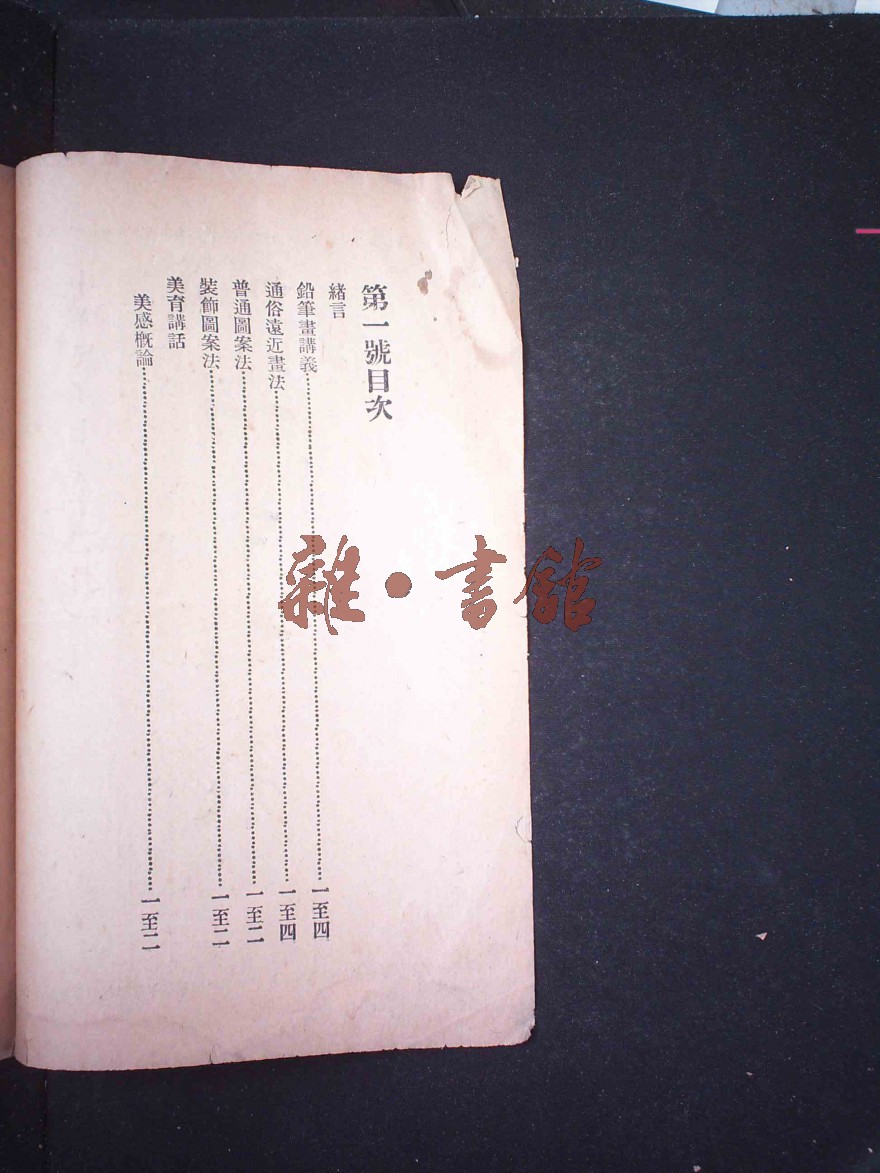 第一號目次
緒言
鉛筆畫講義……一至四
通俗遠近畫法……一至四
普通圖案法……一至二
裝飾圖案法……一至二
美育講話
美感概論……一至二
雜·書館